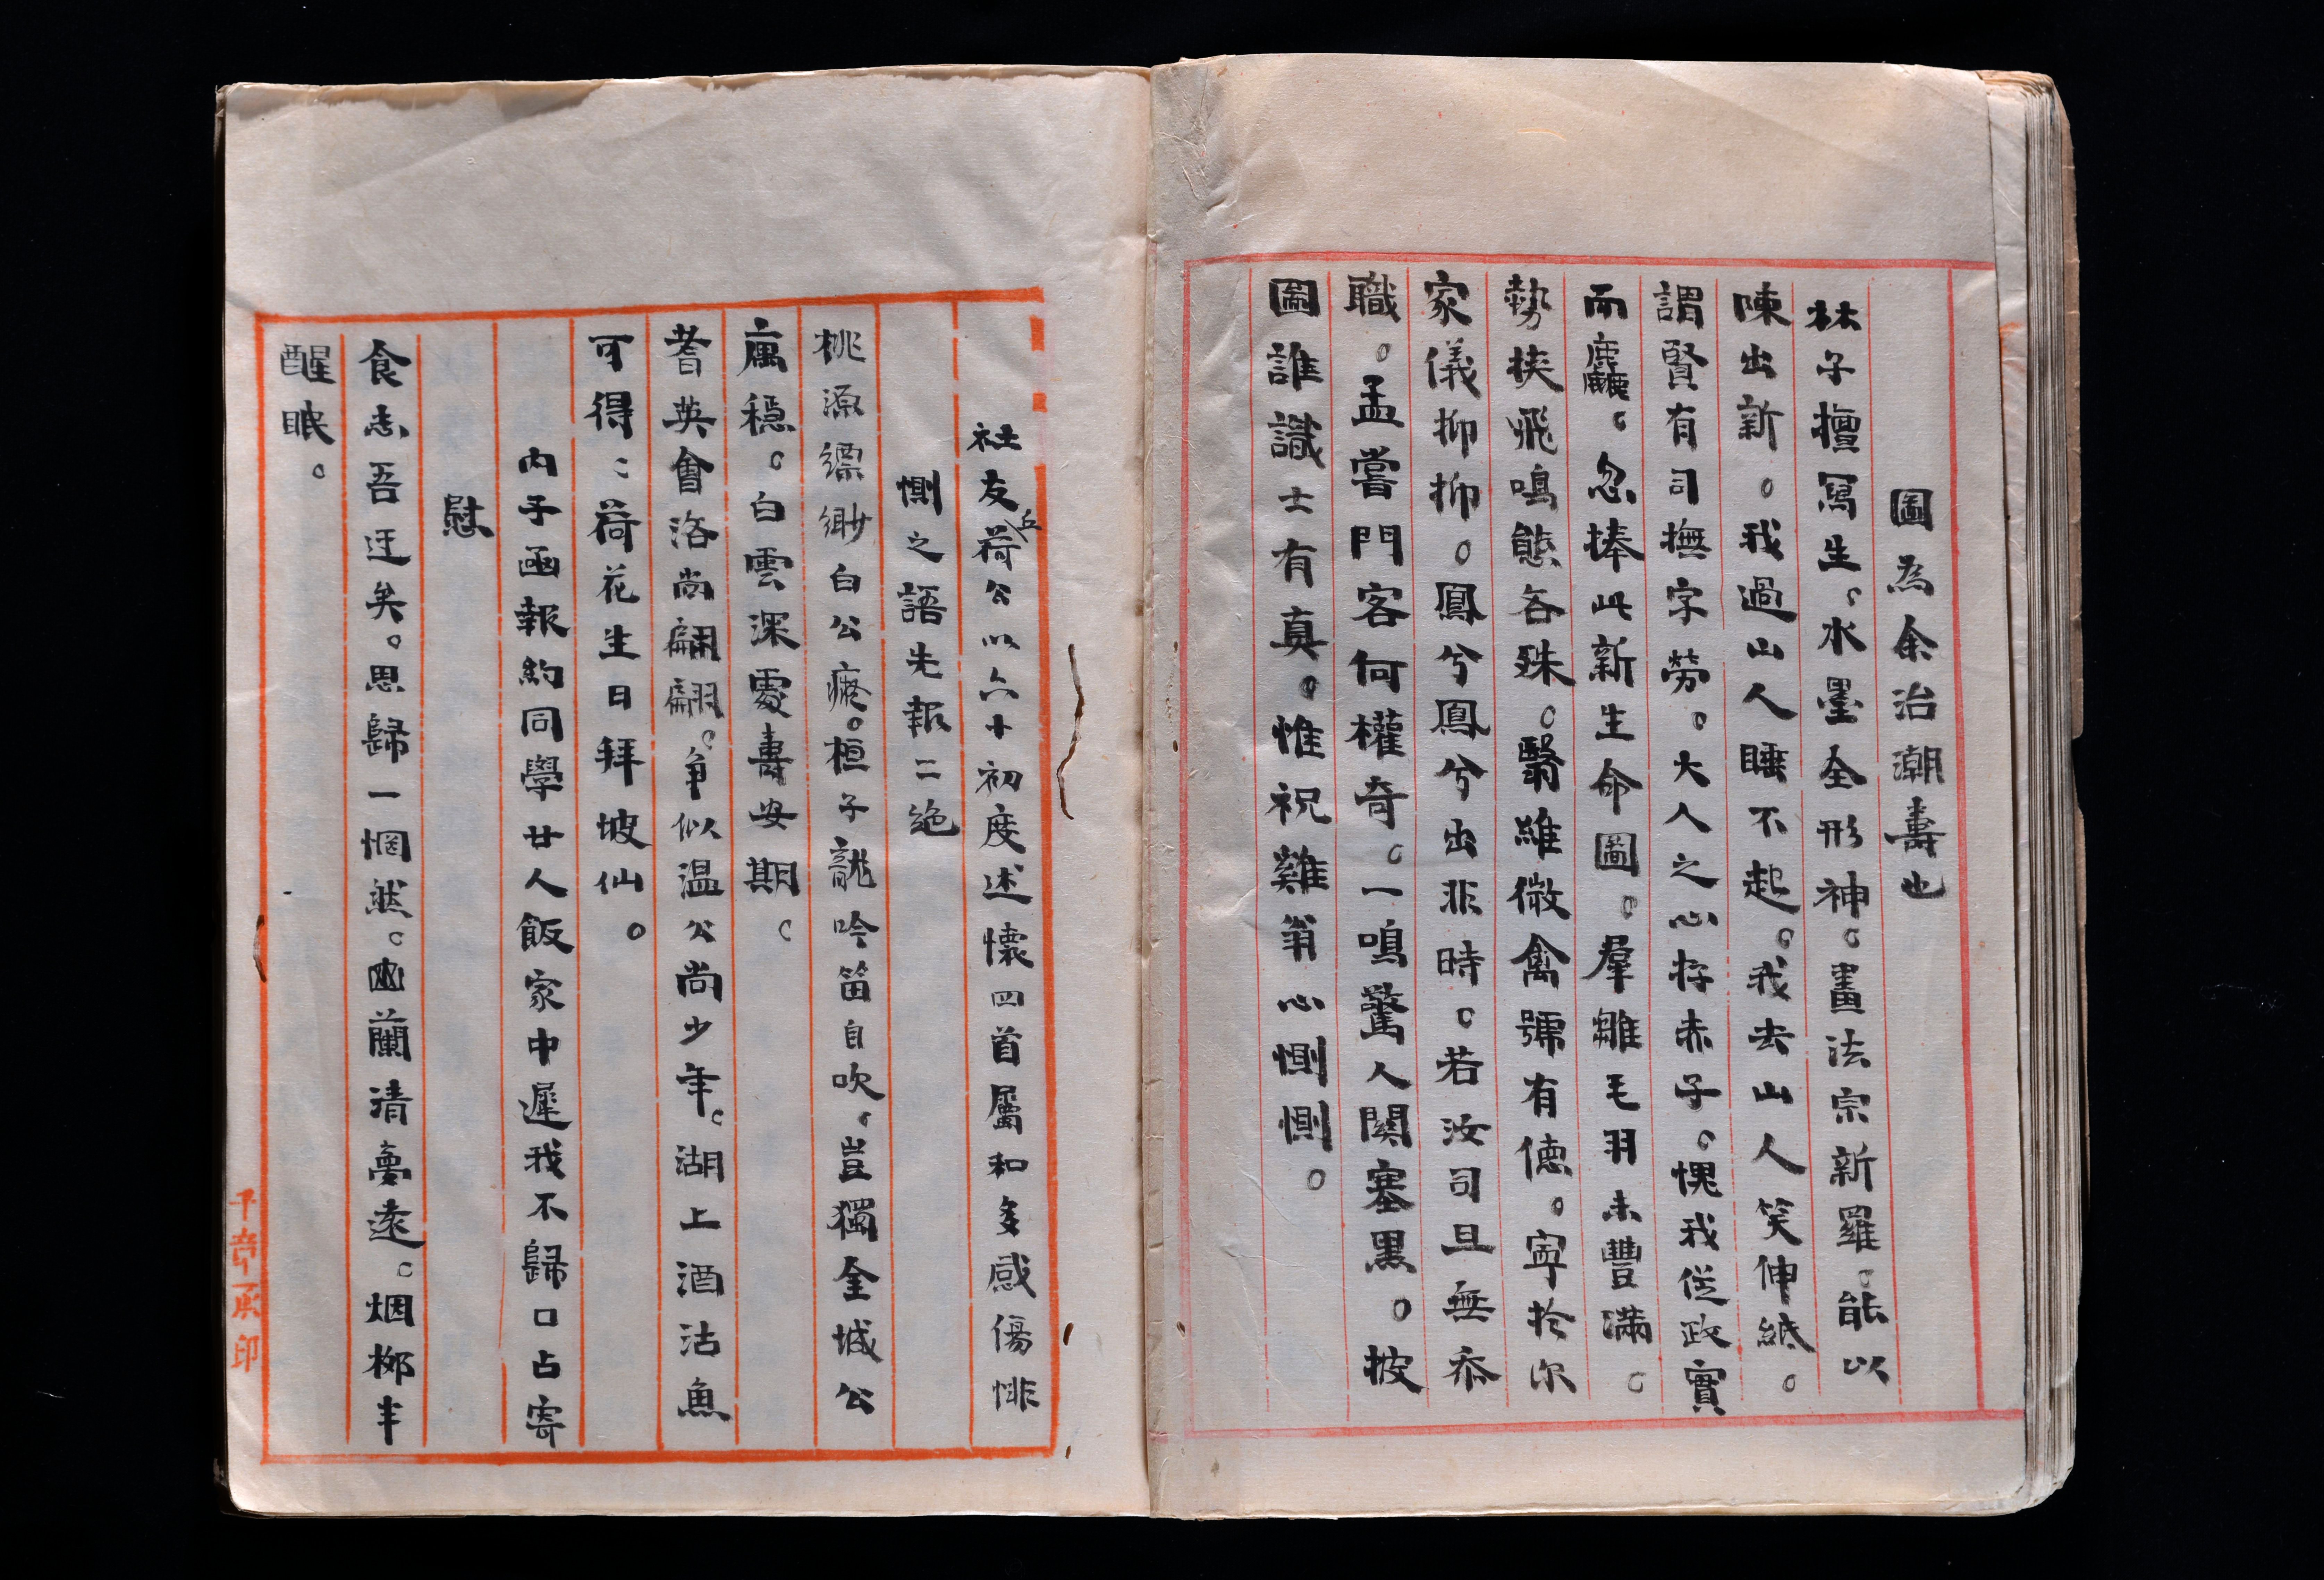 圖為余治潮壽也
林子擅寫生。水墨全形神。畫法宗新羅。能以
陳出新。我過山人睡不起。我去山人笑伸紙。
謂賢有司撫字勞。大人之心捋赤子。愧我從政實
而麤。忽捧此新生命圖。羣雛毛羽未豐滿。
勢挾飛鳴態各殊。翳維微禽號有德。寧於尔
家儀抑抑。鳳兮鳳兮出非時。若汝司旦無忝
職。孟嘗門客何權奇。一鳴驚人關塞黑。披
圖誰識士有真。惟祝雞翁心惻惻。
社友荷丘公以六十初度述懷四首屬和多感傷悱
惻之語先報二絶
桃源縹緲白公癡。桓子龍吟笛自吹。豈獨金城公
寓穩。白雲深處壽安期。
耆英會洛尚翩翩。争似温公尚少年。湖上酒沽魚
可得。荷花生日拜坡仙。
内子函報約同學廿人飯家中遲我不歸口占寄
慰
食志吾迂矣。思歸一惘然。幽蘭清夢遠。烟柳半
醒眠。